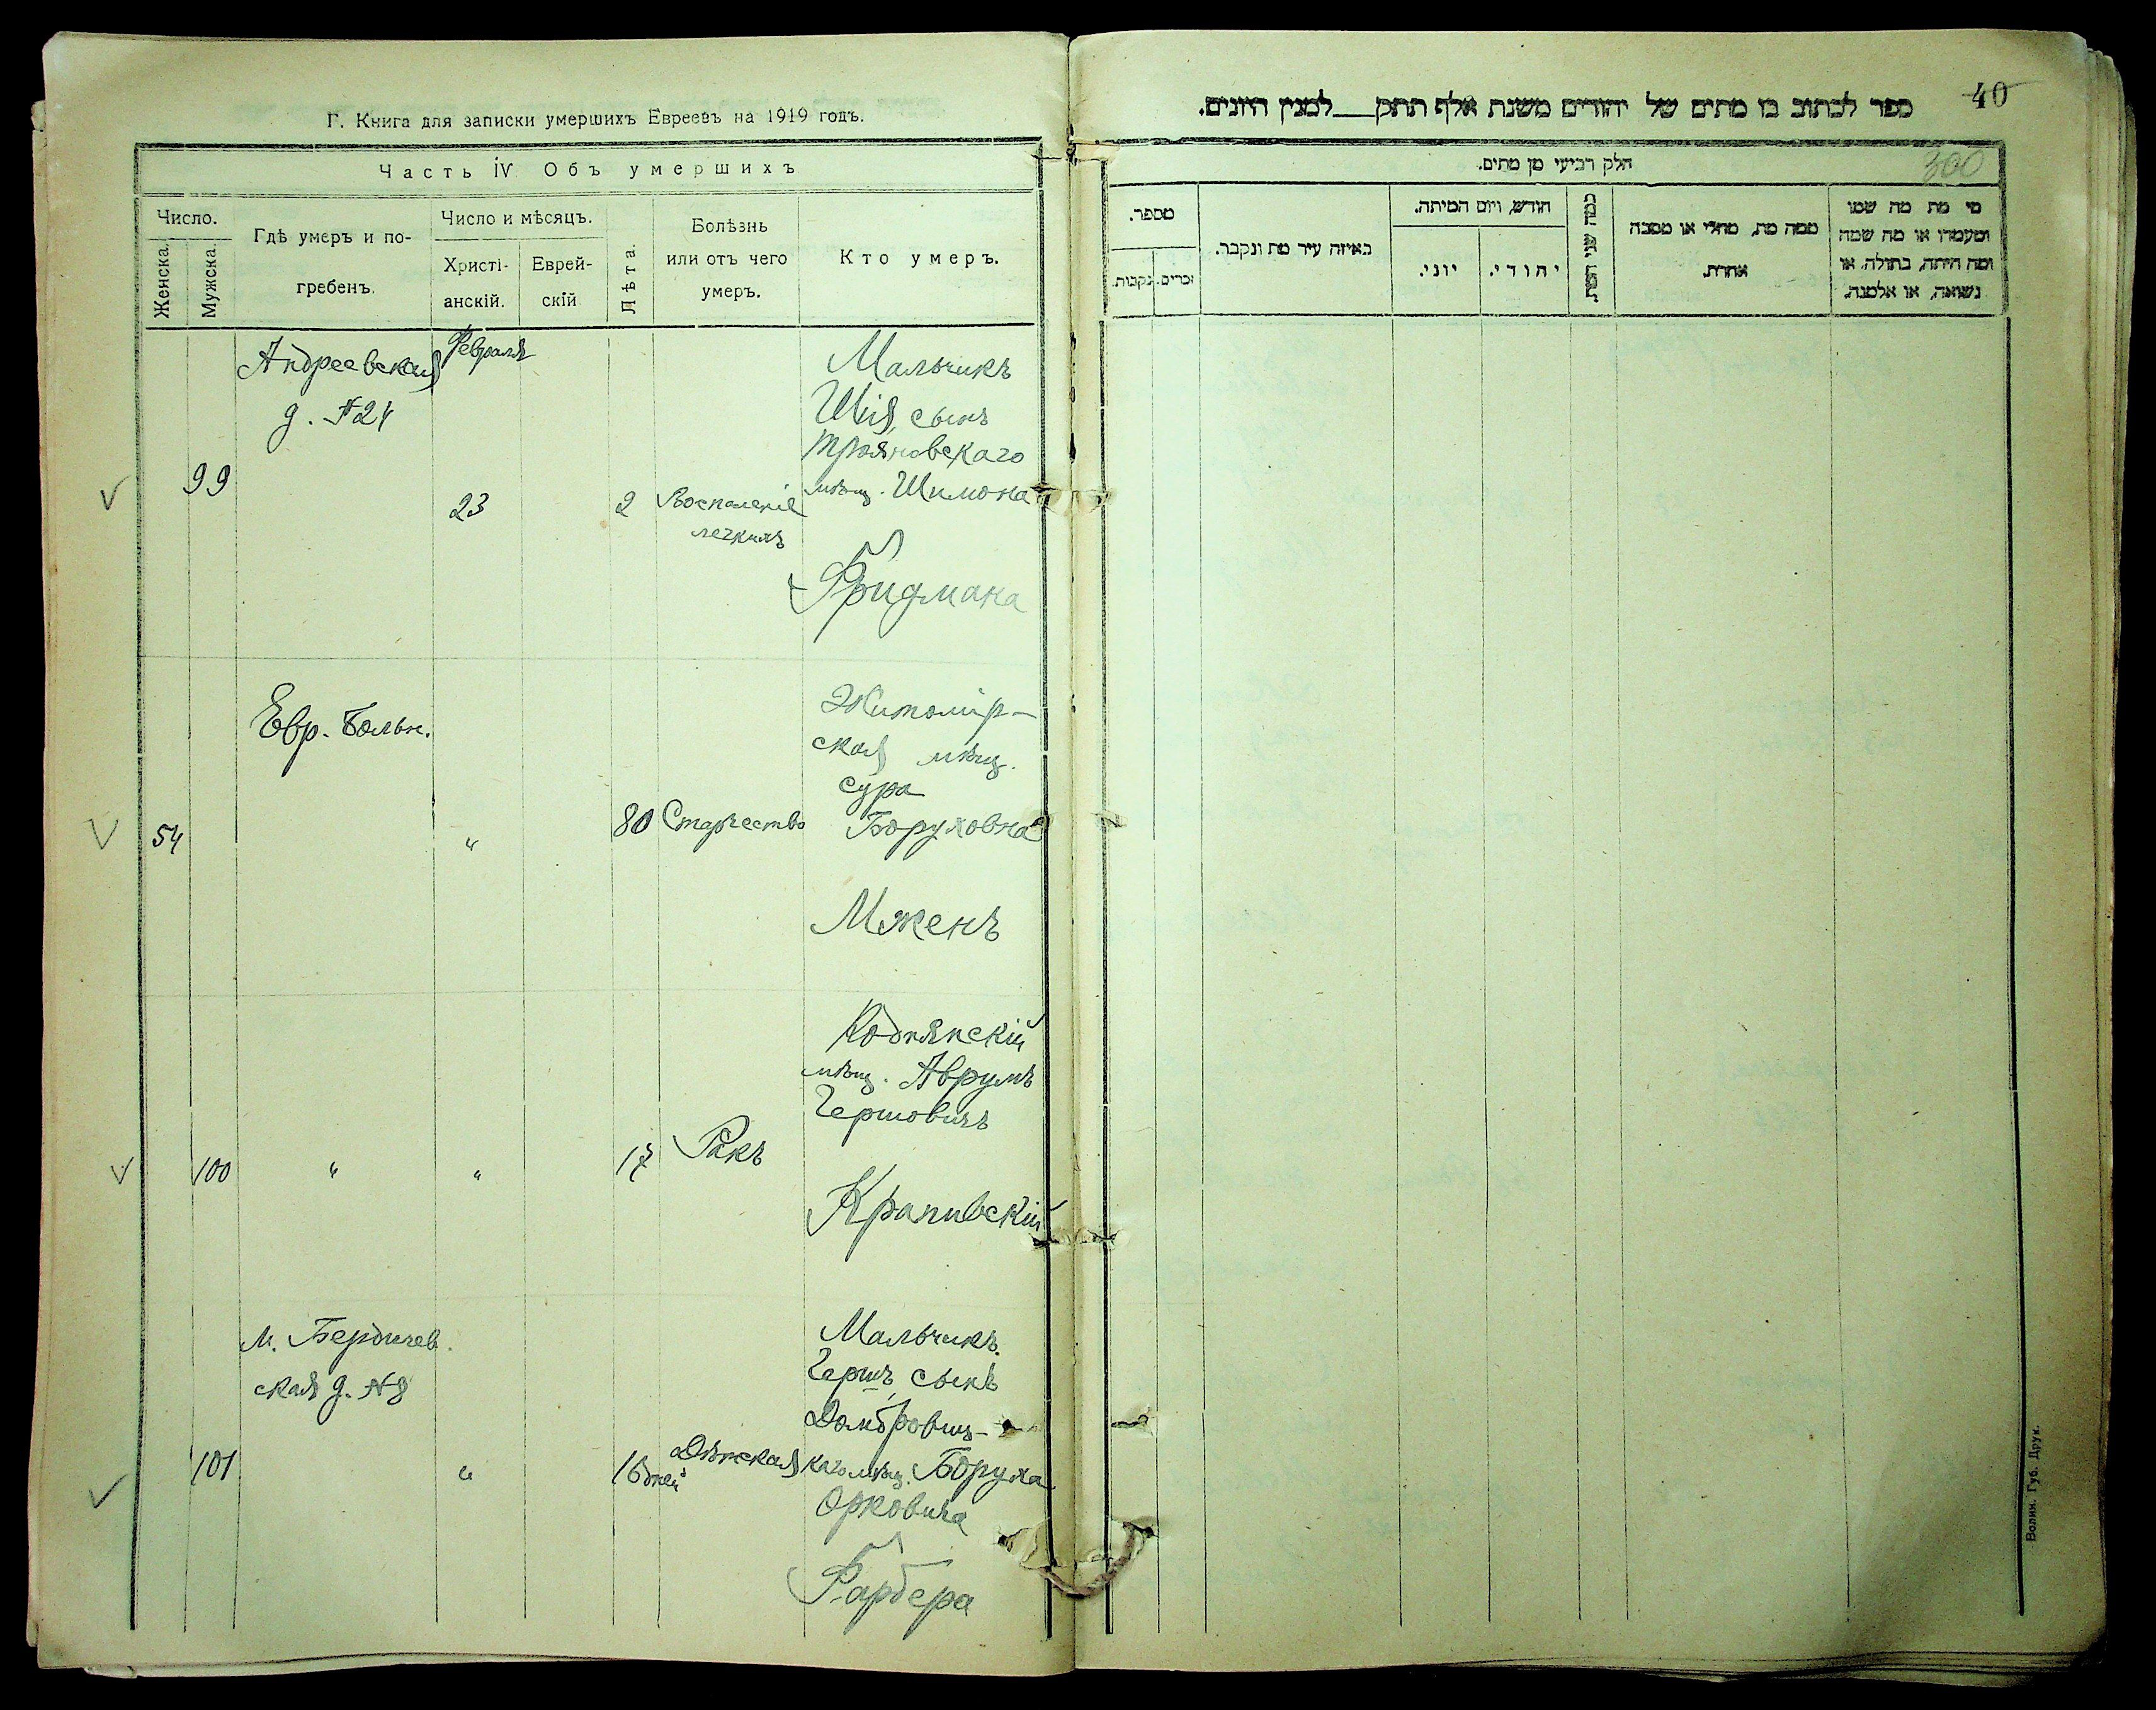 Г. Книга для записки умершихъ Евреевъ на 1919 годъ.
Часть IV Объ умершихъ
Число.
Женска
Мужска
Гдѣ умеръ и по-
гребенъ.
Число и мѣсяцъ.
Христі-
анскій.
Еврей-
скій
Лѣта.
Болѣзнь
или отъ чего
умеръ.
Кто умеръ.
99
Андреевская
д. №24
Февраля
23
2
Воспаленіе
легкихъ
Мальчикъ
Шія, сынъ
Трояновскаго
мѣщ. Шимона
Фридмана
54
Евр. Больн.
"
80
Старчество
Житомір-
ская мѣщ.
Сура
Боруховна
Мженъ
100
"
"
17
Ракъ
Коднянскій
мѣщ. Аврумъ
Гершовичъ
Крапивскій
101
М. Бердичев.
ская д. №8
"
16 дней
Дѣтская
Мальчикъ.
Гершъ, сынъ
Домбровиц-
каго мѣщ. Боруха
Орковича
Фарбера
40
ספר לכתוב בו מתים של יהודים משנת אלף תתק למנין היונים.
300
חלק רביעי מן מתים.
מספר.
נקבות.
זכרים.
באיזה עיר מת ונקבר.
חודש, ויום המיתה.
יוני.
יהודי.
כמה שני המת.
ממה מת, מחלי או מסבה
אחרת.
מי מת מה שמו
ומעמדו או מה שמה
ומה היתה, בתולה, או
נשואה, או אלמנה.
Волин. Губ. Друк.